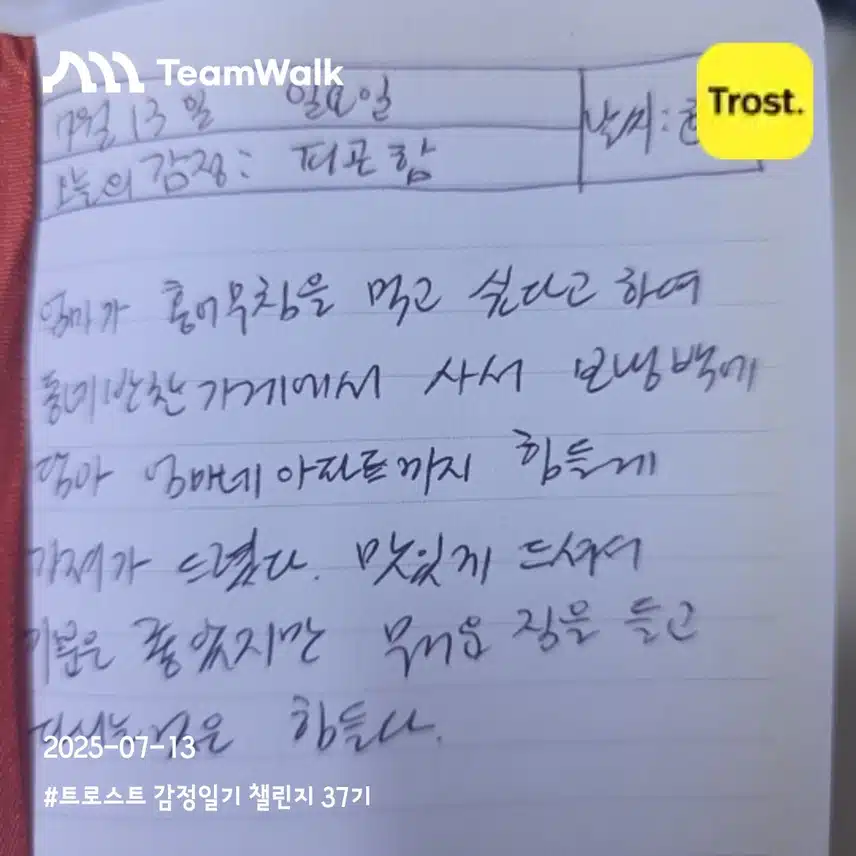 TeamWalk
Trost.
7월 13일 일요일
날씨:
오늘의 감정: 피곤함
엄마가 홍어무침을 먹고 싶다고 하여
동네반찬가게에서 사서 보냉백에
담아 엄마네아파트까지 힘들게
가져가 드렸다. 맛있게 드셔서
기분은 좋았지만 무거운 짐을 들고
힘들다.
2025-07-13
#트로스트 감정일기 챌린지 37기